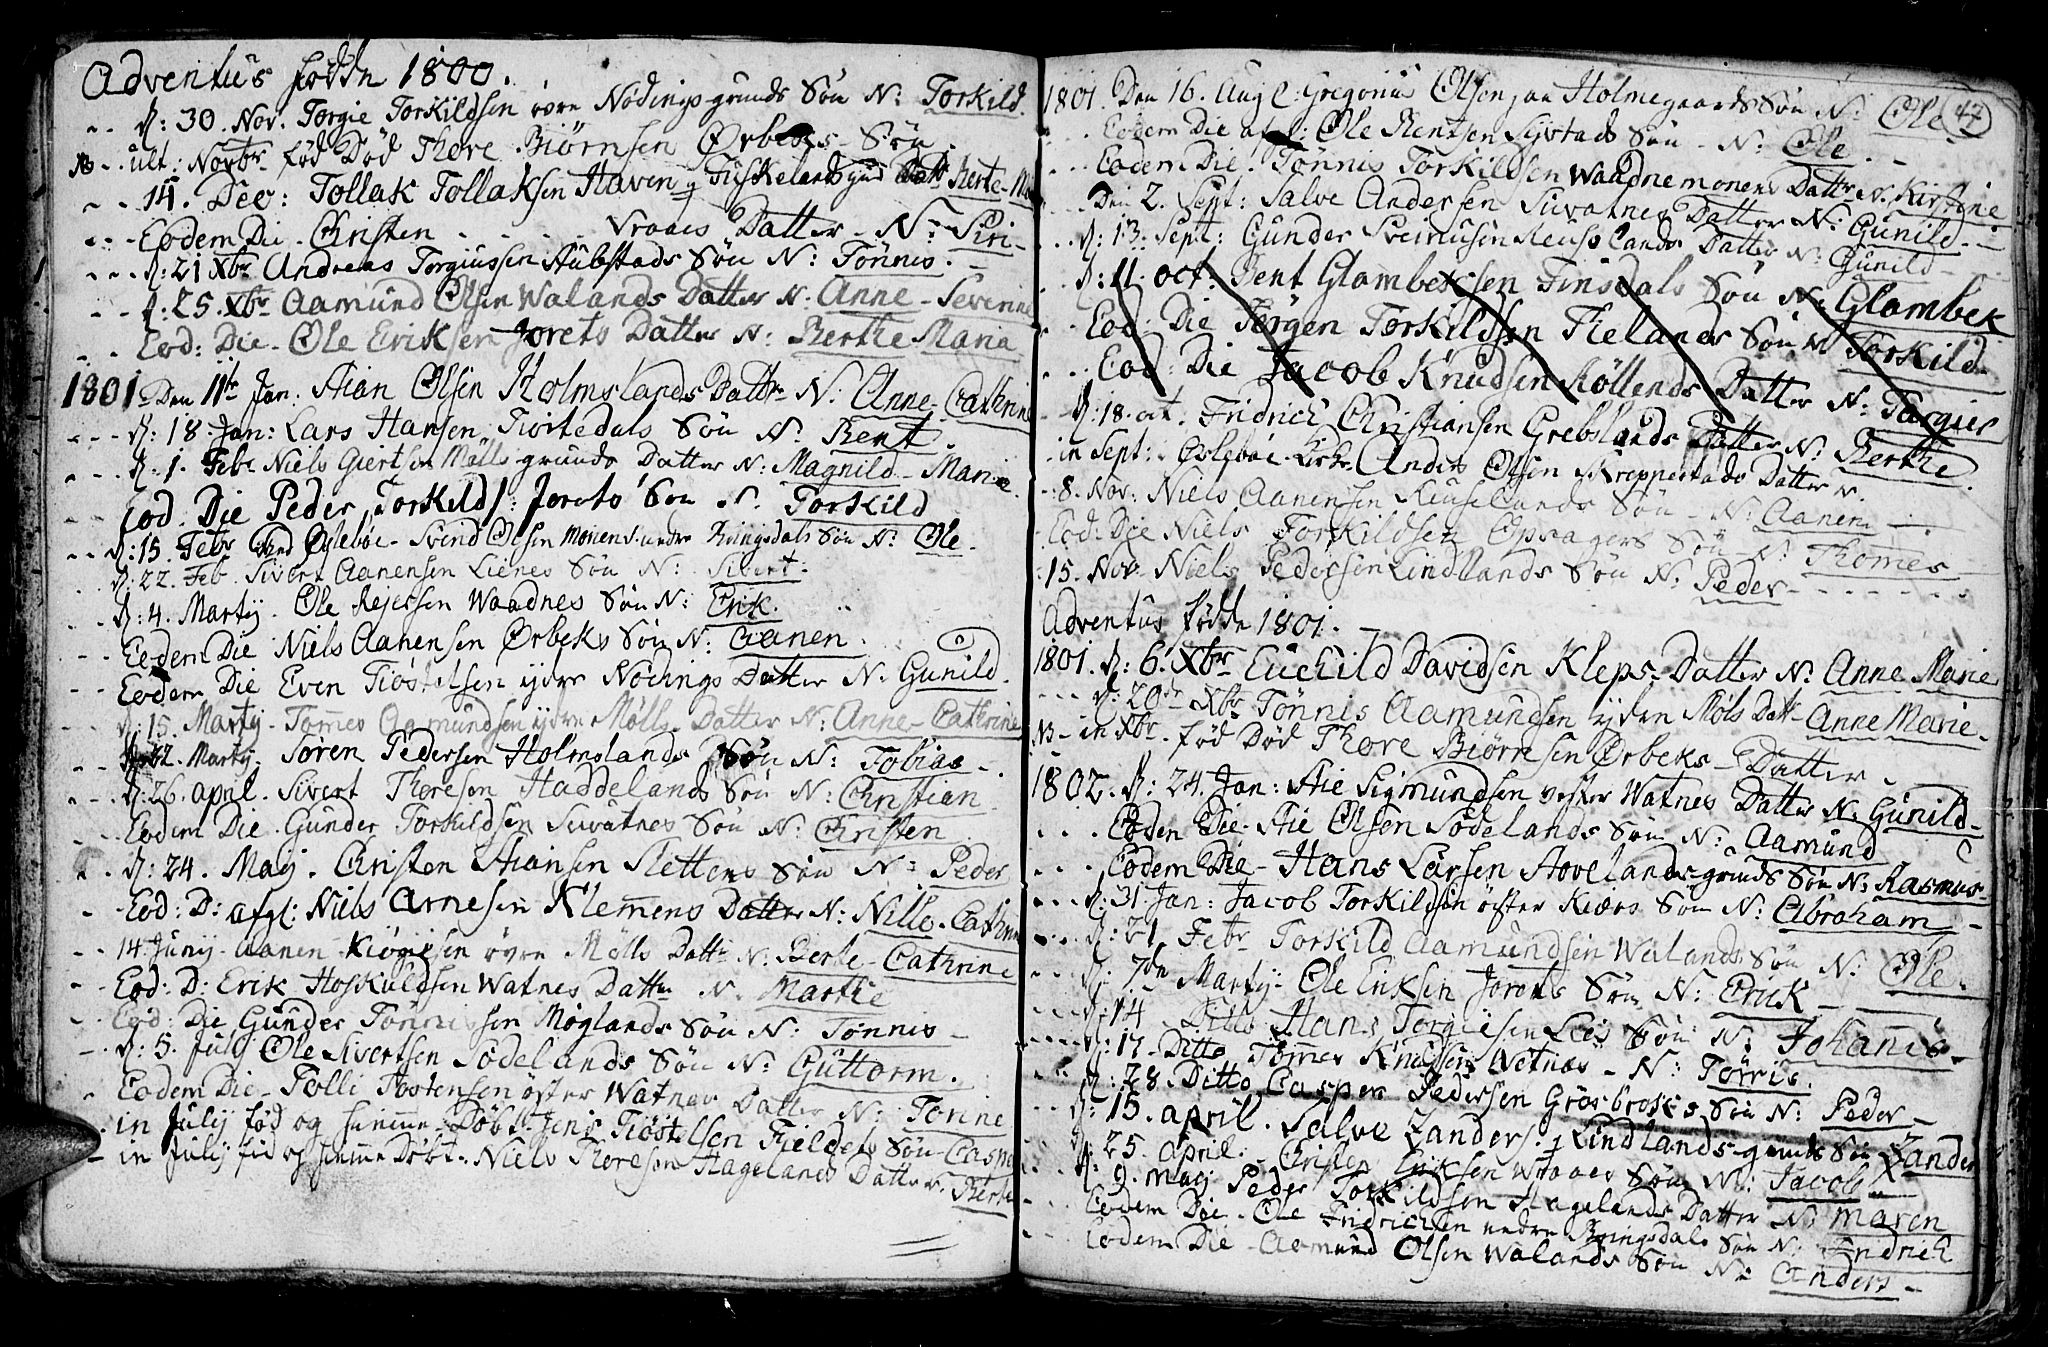 Adventus fødde 1800.
d: 30. Nov. Torgie Torkildsen øvre Nødings grunds Søn N: Torkild.
NB ult: Novbr fød Død Thore Biørnsen Ørbeks Søn.
14. Dec: Tollak Tollaksen Haven Datt: Berte-
Eodem Die. Christen Vraaes Datter N: Siri
d: 21 Xbr Andreas Torgiussen Aubstads Søn N: Tönnis.
d: 25. Xbr Aamund Olsen Walands Datter N: Anne-Severine
Eod: Die. Ole Eriksen Jorets Datter N: Berthe Maria
1801. Den 11te Jan: Stian Olsen Holmslands Datter N. Anne-Cathrine
d: 18. Jan: Lars Hansen Søn N. Bent.
d. 1. Feb. Niels Giertsen Mølls grunds Datter N: Magnild-Marie.
Eod. Die Peder Torkilds: Jorets Søn N. Torkild
d: 15. Febr Øslebøe. Svend Olsen Monen nedre Ringsdals Søn N: Ole.
d: 22. Feb. Sivert Aanensen Lienes Søn N: Sivert.
d: 4. Martij. Ole Rejersen Waadnes Søn N: Erik.
Eodem Die Niels Aanensen Ørbeks Søn N: Aanen.
Eodem Die Even Tiøstelsen ydre Nödings Datter N. Gunild.
d: 15. Martij. Tommes Aamundsen ydre Mølls Datter N: Anne-Cathrine
22. Martij. Søren Pedersen Holmslands Søn N: Tobias.
d: 26. april. Sivert Thoresen Haddelands Søn N: Christian
Eodem Die. Gunder Torkildsen Suvatnes Søn N: Christen
d: 24. Maj. Christen Stiansen Slettens Søn N: Peder
Eod: D: afgl: Niels Arnesen Klemens Datter N: Nille-Cathrine
14 Junij. Aanen Kiøgiesen øvre Mölls Datter N. Berte-Cathrine
Eod: D: Erik Hoskuldsen Watnes Datter N. Marthe
Eod: Die Gunder Tönnissen Møglands Søn N: Tønnis
d: 5. Julij Ole Sivertsen Sødelands Søn N: Guttorm.
Eodem Die. Tolli Tostensen øster Watnes Datter N: Torine
in Julij fød og hjemme Døbt. Jens Tiøstelsen Fieldets Søn Caspe
in Julij fød og hjemme Døbt. Niels Thoresen Hagelands Datter. Berte
47
1801. Den 16. Aug Gregorius Olsen Holmegaards Søn N: Ole
Eodem Die Ole Bentsen Systads Søn N: Ole
Eodem Die. Tønnis Torkildsen Waadnemonens Datter N. Kirstine
Den 2. Sept: Salve Andersen Suvatnes Datter N: Gunild.
d: 13. Sept: Gunder Sveinusen Reuslands Datter N: Gunild
d: 11. oct: Bent Glambeksen Finsdals Søn N: Glambek
Eod: Die Jörgen Torkildsen Thelands Søn N Torkild
Eod: Die Jacob Knudsen Støllends Datter N: Torgier
d: 18. oct. Fridrich Christiansen Grebslands Datter N: Berthe.
in Sept: Øslebøe Kirke Anders Olsen Skreppestads Datter N.
8. Nov. Niels Aanensen Reuselands Søn N: Aanen
Eod: Die Niels Torkildsen Opsagers Søn N. Thomes
15. Nov. Niels Pedersen Lindlands Søn N: Peder
Adventus fødde 1801.
1801. d: 6. Xbr Euchild Davidsen Kleps Datter N: Anne Marie
d: 20de Xbr Tønnis Aamundsen ydre Møls Datt- Anne Marie.
NB in Xbr. fød Død Thore Biørnsen Ørbeks Datter
1802. d: 24. Jan: Stie Sigmundsen vester Watnes Datter N: Gunild
Eoden Die. Stie Olsen Sødelands Søn N: Aamund
Eodem Die. Hans Larsen Hovelands grunds Søn N: Rasmus
d: 31. Jan: Jacob Torkildsen øster Kiærs Søn N: Abraham
d: 21 Febr Torkild Aamundsen Walands Søn N: Ole
d. 7de Martij. Ole Eriksen Jorets Søn N: Erick
d: 14 Ditto Hans Torgiesen Lies Søn N: Johanis
d: 17. Ditto Tommes Knudsen Wetnes N: Torris.
d: 28. Ditto Casper Pedersen Grosbroks Søn N: Peder
d: 15. april. Salve Zanders. Lindlands-grunds Søn Zander
d: 25. april. Christen Eriksen Wraaes Søn N: Jacob
d. 9. maij Peder Torkildsen Hagelands Datter N: Maren
Eodem Die. Ole Fridrichsen nedre Ringsdals Søn N: Fridrich
Eodem Die Aamund Olsen Walands Søn N: Anders